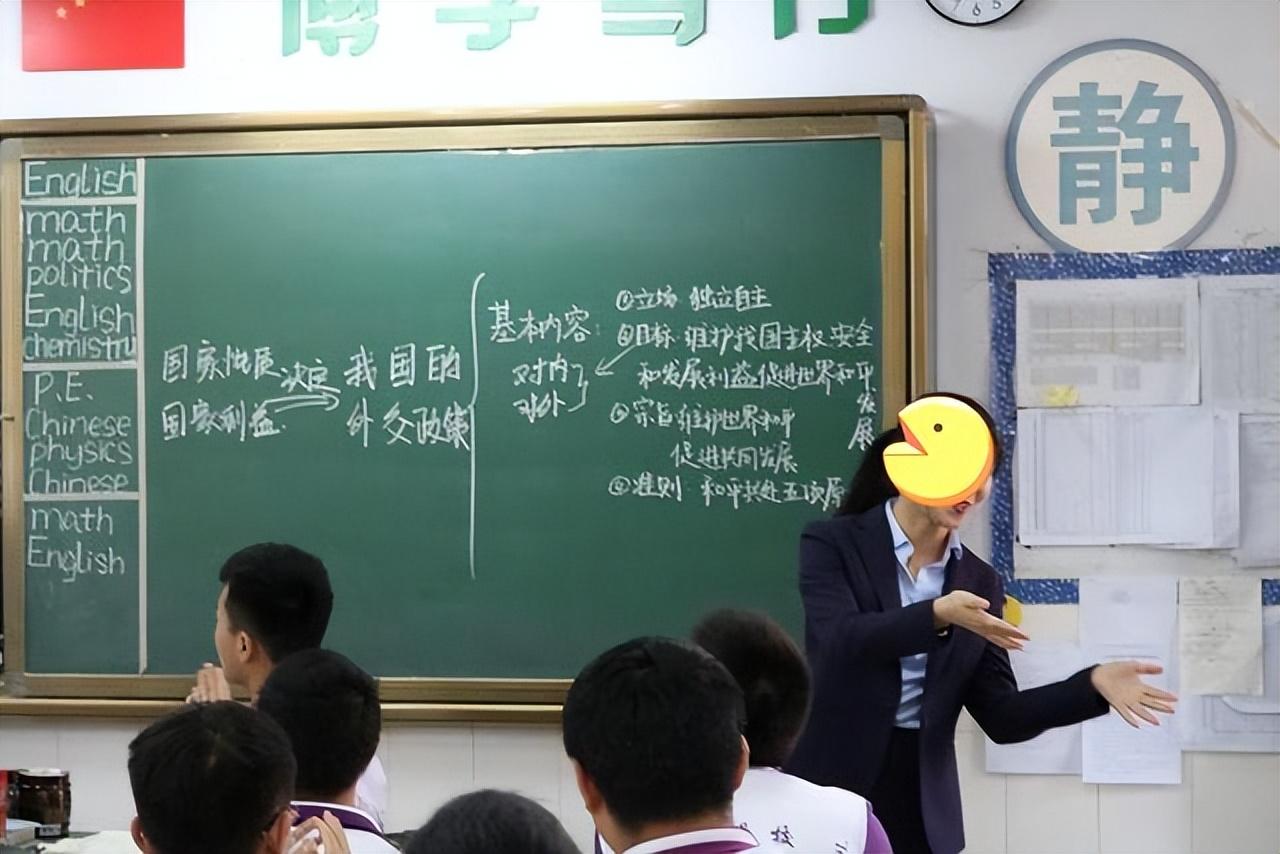 博学笃行
静
English
math
math
politics
English
chemistry
P.E.
Chinese
physics
Chinese
math
English
国家性质 决定 我国的
国家利益 外交政策
基本内容:
对内
对外
①立场 独立自主
②目标 维护我国主权、安全
和发展利益促进世界和平
发展
③宗旨 维护世界和平
促进共同发展
④准则: 和平共处五项原
校